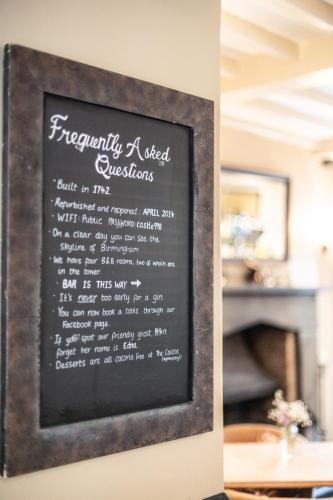 Frequently Asked
Questions
· Built in 1742.
· Refurbished and reopened: APRIL 2014
· WIFI: Public PASSWORD: castle998
· On a clear day you can see the
skyline of Birmingham.
· We have four B&B rooms, two of which are
in the tower.
· BAR IS THIS WAY →
· It's never too early for a gin.
· You can now book a table through our
Facebook page.
· If you spot our friendly ghost, don't
forget her name is Edna.
· Desserts are all calorie free at The Castle.